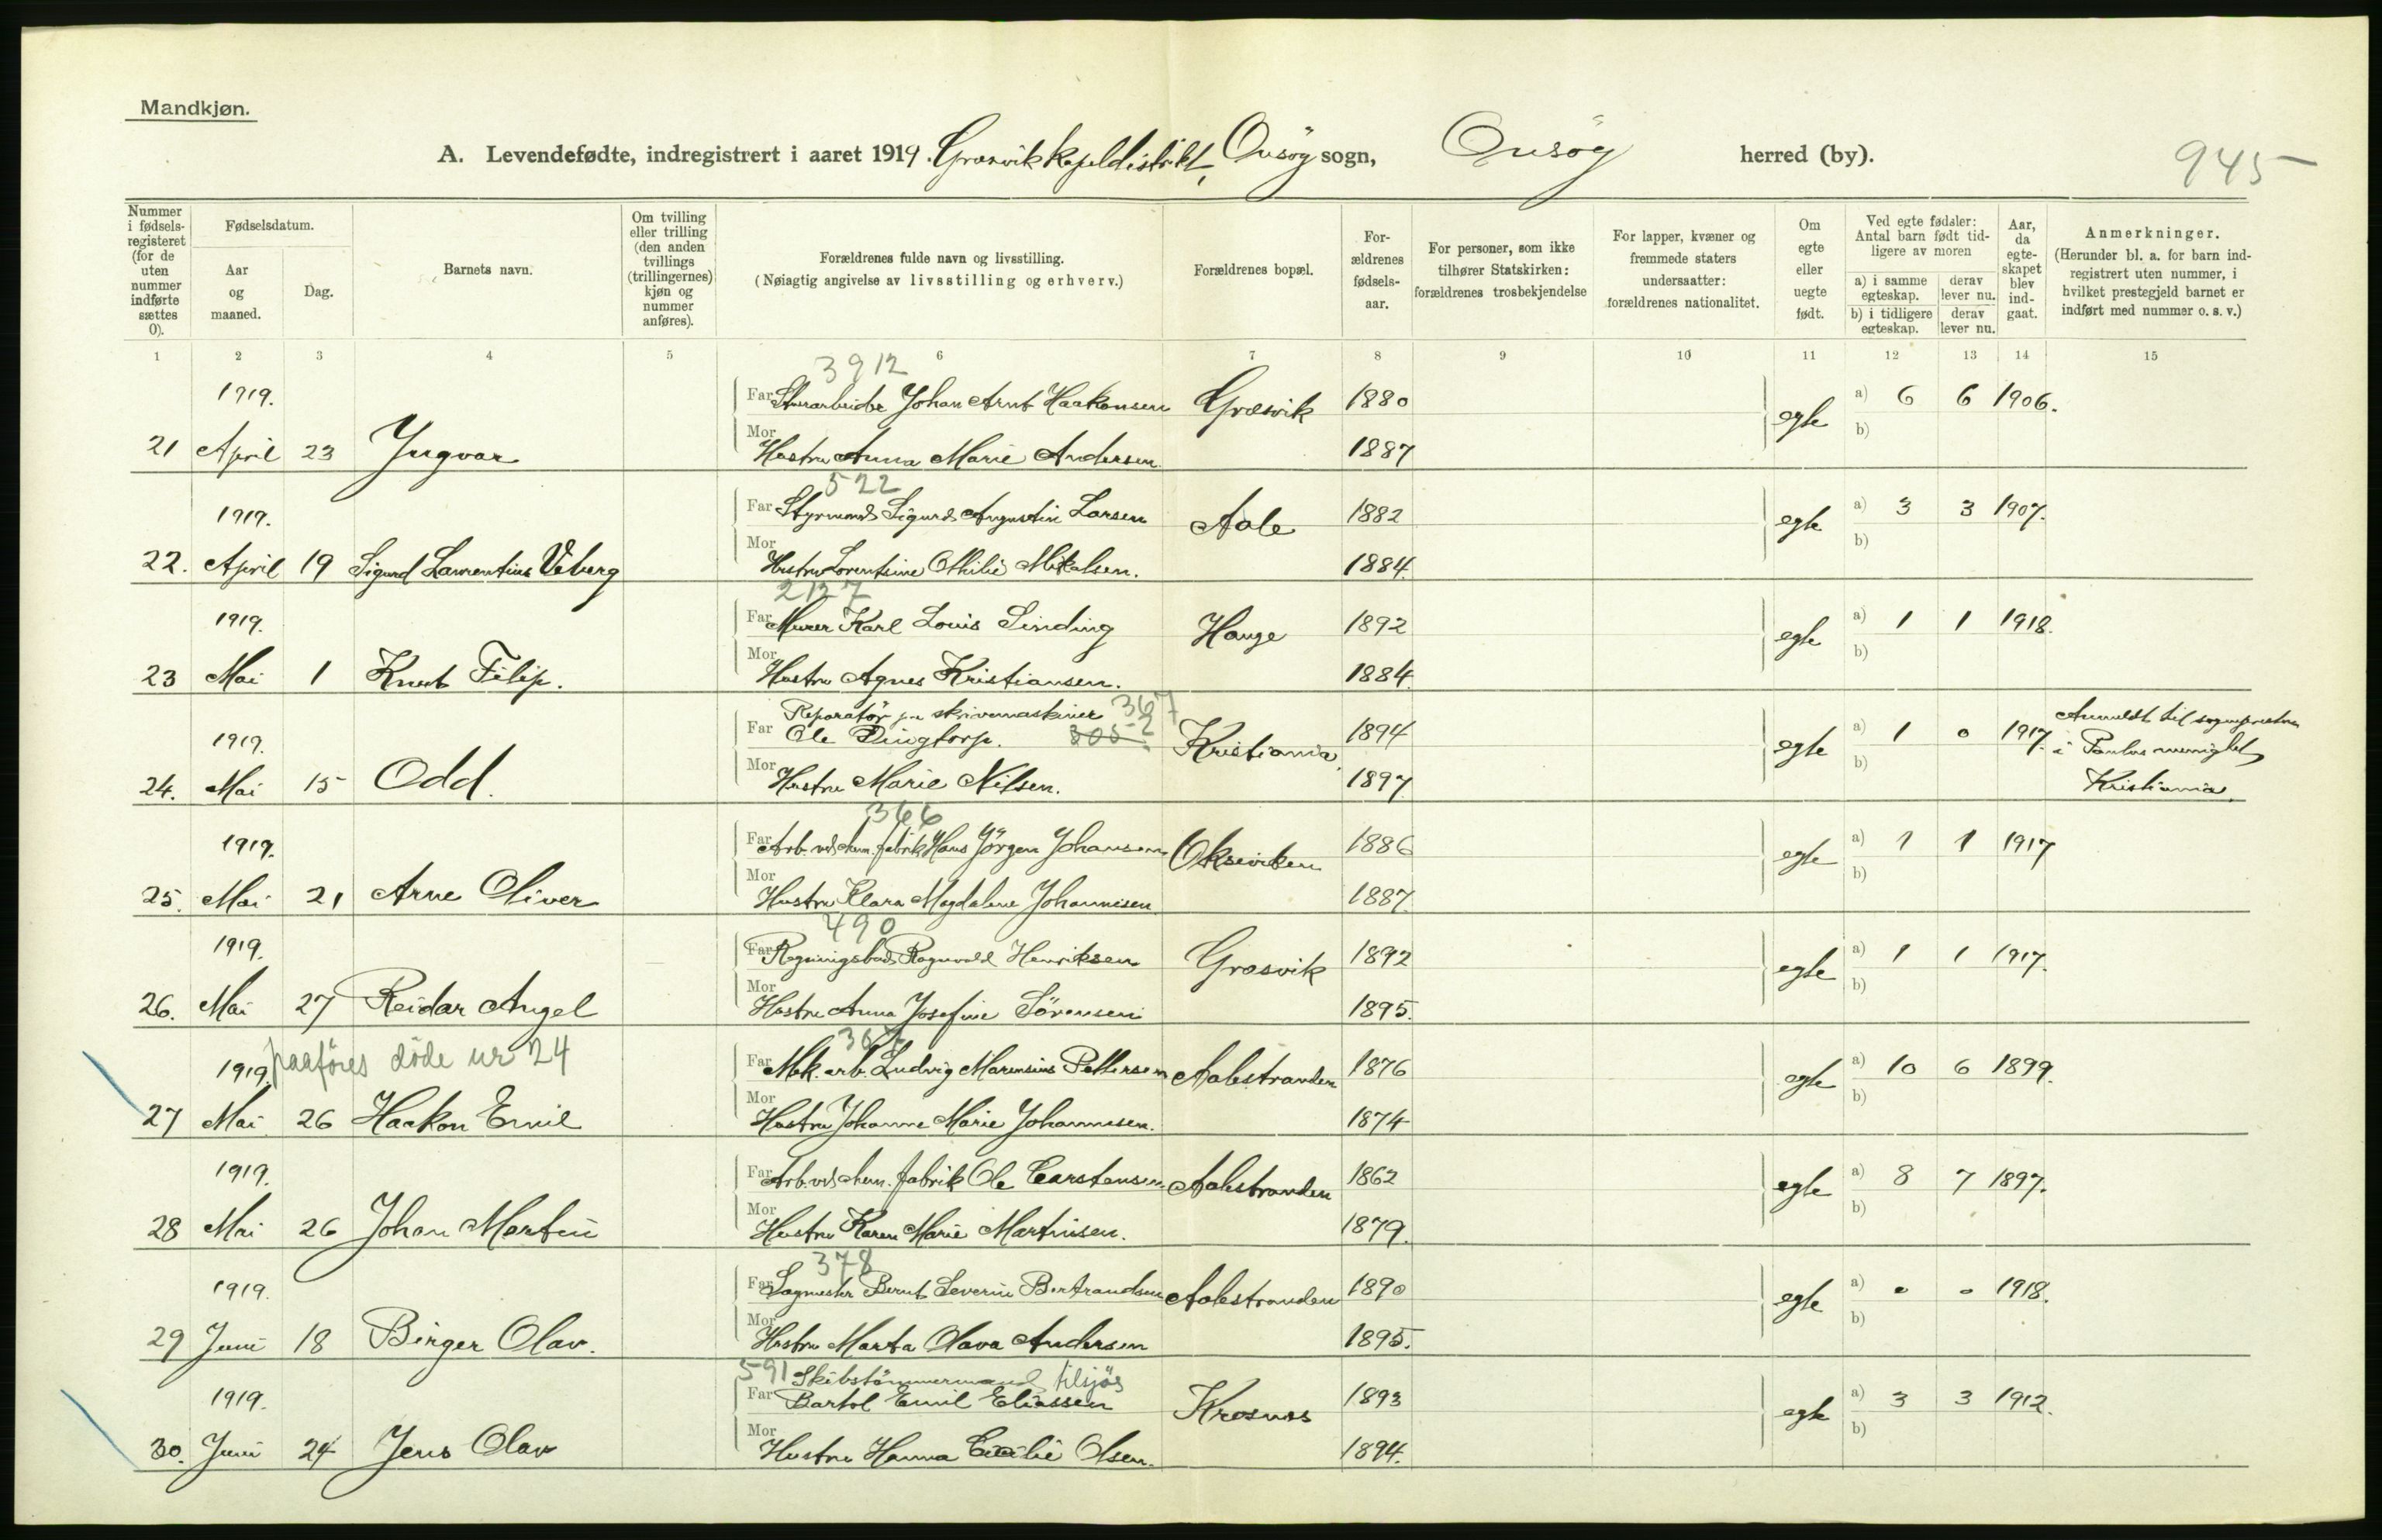 Mandkjøn.
A. Levendefødte, indregistrert i aaret 1919. Græsvik kapeldistrikt, Onsöy sogn, Onsöy herred (by).
945
Nummer i fødsels-registeret (for de uten nummer indførte sættes 0).
Fødselsdatum.
Aar og maaned.
Dag.
Barnets navn.
Om tvilling eller trilling (den anden tvillings (trillingernes) kjøn og nummer anføres).
Forældrenes fulde navn og livsstilling.
(Nøiagtig angivelse av livsstilling og erhverv.)
Forældrenes bopæl.
For-ældrenes fødsels-aar.
For personer, som ikke tilhører Statskirken: forældrenes trosbekjendelse
For lapper, kvæner og fremmede staters undersaatter: forældrenes nationalitet.
Om egte eller uegte født.
Ved egte fødsler: Antal barn født tid-ligere av moren
a) i samme egteskap.
derav lever nu.
b) i tidligere egteskap.
derav lever nu.
Aar, da egte-skapet blev ind-gaat.
Anmerkninger.
(Herunder bl. a. for barn ind-registrert uten nummer, i hvilket prestegjeld barnet er indført med nummer o. s. v.)
1 2 3 4 5 6 7 8 9 10 11 12 13 14 15
3912
1919. Far Johan Arnt Haakonsen Græsvik 1880 egte a) 6 6 1906.
21 April 23 Yngvar Mor Hustru Anna Marie Andersen 1887 b)
522
1919. Far Styrmand Sigurd Augustin Larsen Aale 1882 egte a) 3 3 1907.
22. April 19 Sigurd Laurentius Viberg Mor Hustru Lorentsine Othilie Mikalsen. 1884. b)
2137
1919. Far Murer Karl Louis Sinding Hauge 1892 egte a) 1 1 1918.
23 Mai 1 Knut Filip. Mor Hustru Agnes Kristiansen. 1884. b)
Reparatör paa skrivemaskiner 367
1919. Far Ole Ringtorp. 305 2 Kristiania. 1894 egte a) 1 0 1917. Anmeldt til sogneprestен i Paulus menighet,
24. Mai 15 Odd. Mor Hustru Marie Nilsen. 1897. b) Kristiania.
366
1919. Far Arb. ved chem. fabrik Hans Jörgen Johansen Oksviken 1886 egte a) 1 1 1917
25. Mai 21 Arne Oliver Mor Hustru Klara Magdalene Johannesen. 1887. b)
490
1919. Far Ragnvald Henriksen Græsvik 1892 egte a) 1 1 1917.
26. Mai 27 Reidar Angel Mor Hustru Anna Josefine Sörensen 1895. b)
paaföres döde nr 24
1919. Far Mek. arb. Ludvig Marensius Pettersen Aalestranden 1876 egte a) 10 6 1899.
27 Mai 26 Haakon Emil Mor Hustru Johanne Marie Johannesen. 1874 b)
1919. Far Arb. ved chem. fabrik Ole Carstensen Aalestranden 1862 egte a) 8 7 1897.
28 Mai 26 Johan Martin Mor Hustru Karen Marie Martinsen. 1879. b)
378
1919. Far Sagmester Bernt Severin Bertrandsen Aalestranden 1890 egte a) 0 0 1918.
29 Juni 18 Birger Olav. Mor Hustru Marta Olava Andersen 1895. b)
591 Skibstömmermand tilsjös
1919. Far Bartol Emil Eliassen Krosnæs 1893 egte a) 3 3 1912.
30. Juni 24 Jens Olav Mor Hustru Hanna Cecilie Olsen. 1894. b)